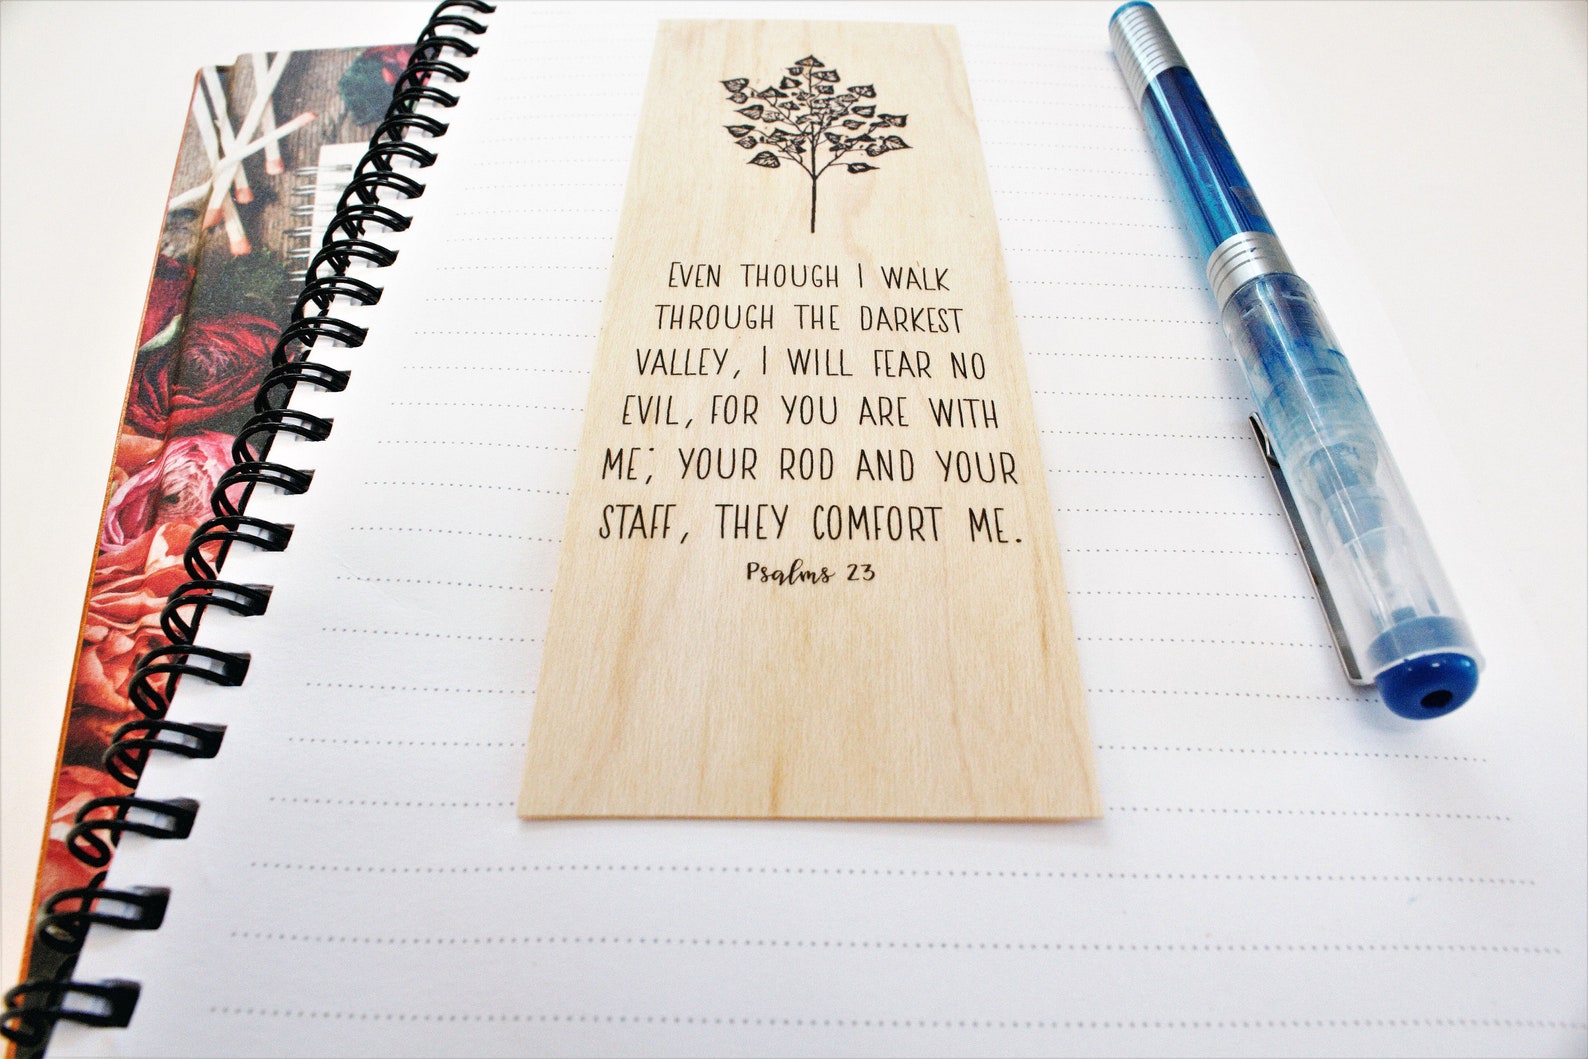 EVEN THOUGH I WALK
THROUGH THE DARKEST
VALLEY, I WILL FEAR NO
EVIL, FOR YOU ARE WITH
ME; YOUR ROD AND YOUR
STAFF, THEY COMFORT ME.
Psalms 23